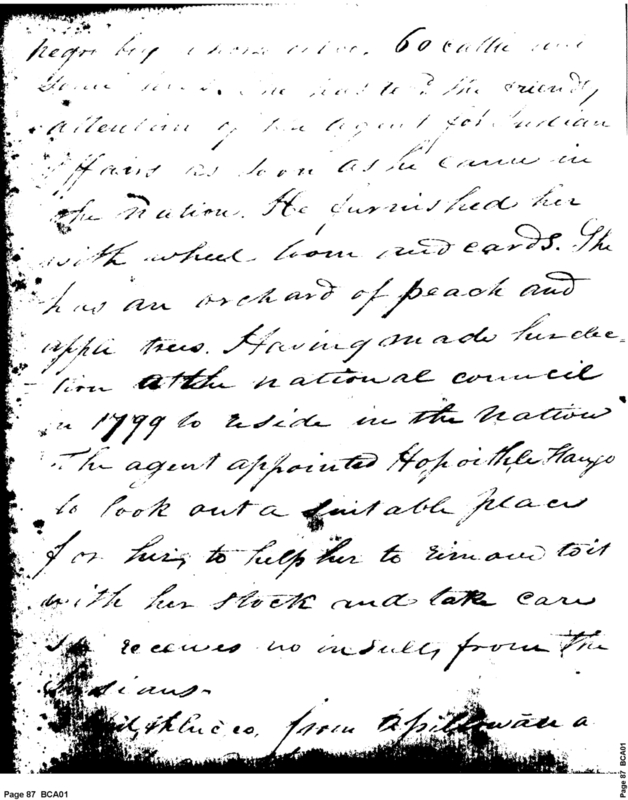 negro boy 60 cattle and
some She has the friendly
attention of the agent for Indian
Affairs as soon as he came in
the nation. He furnished her
with wheel loom and cards. She
has an orchard of peach and
apple trees. Having made her elec-
tion at the national council
in 1799 to reside in the nation
The agent appointed Hopoithle Haujo
to look out a suitable place
for her, to help her to remove to it
with her stock and take care
receives no insults from the
Indians.
from a
Page 87 BCA01
Page 87 BCA01